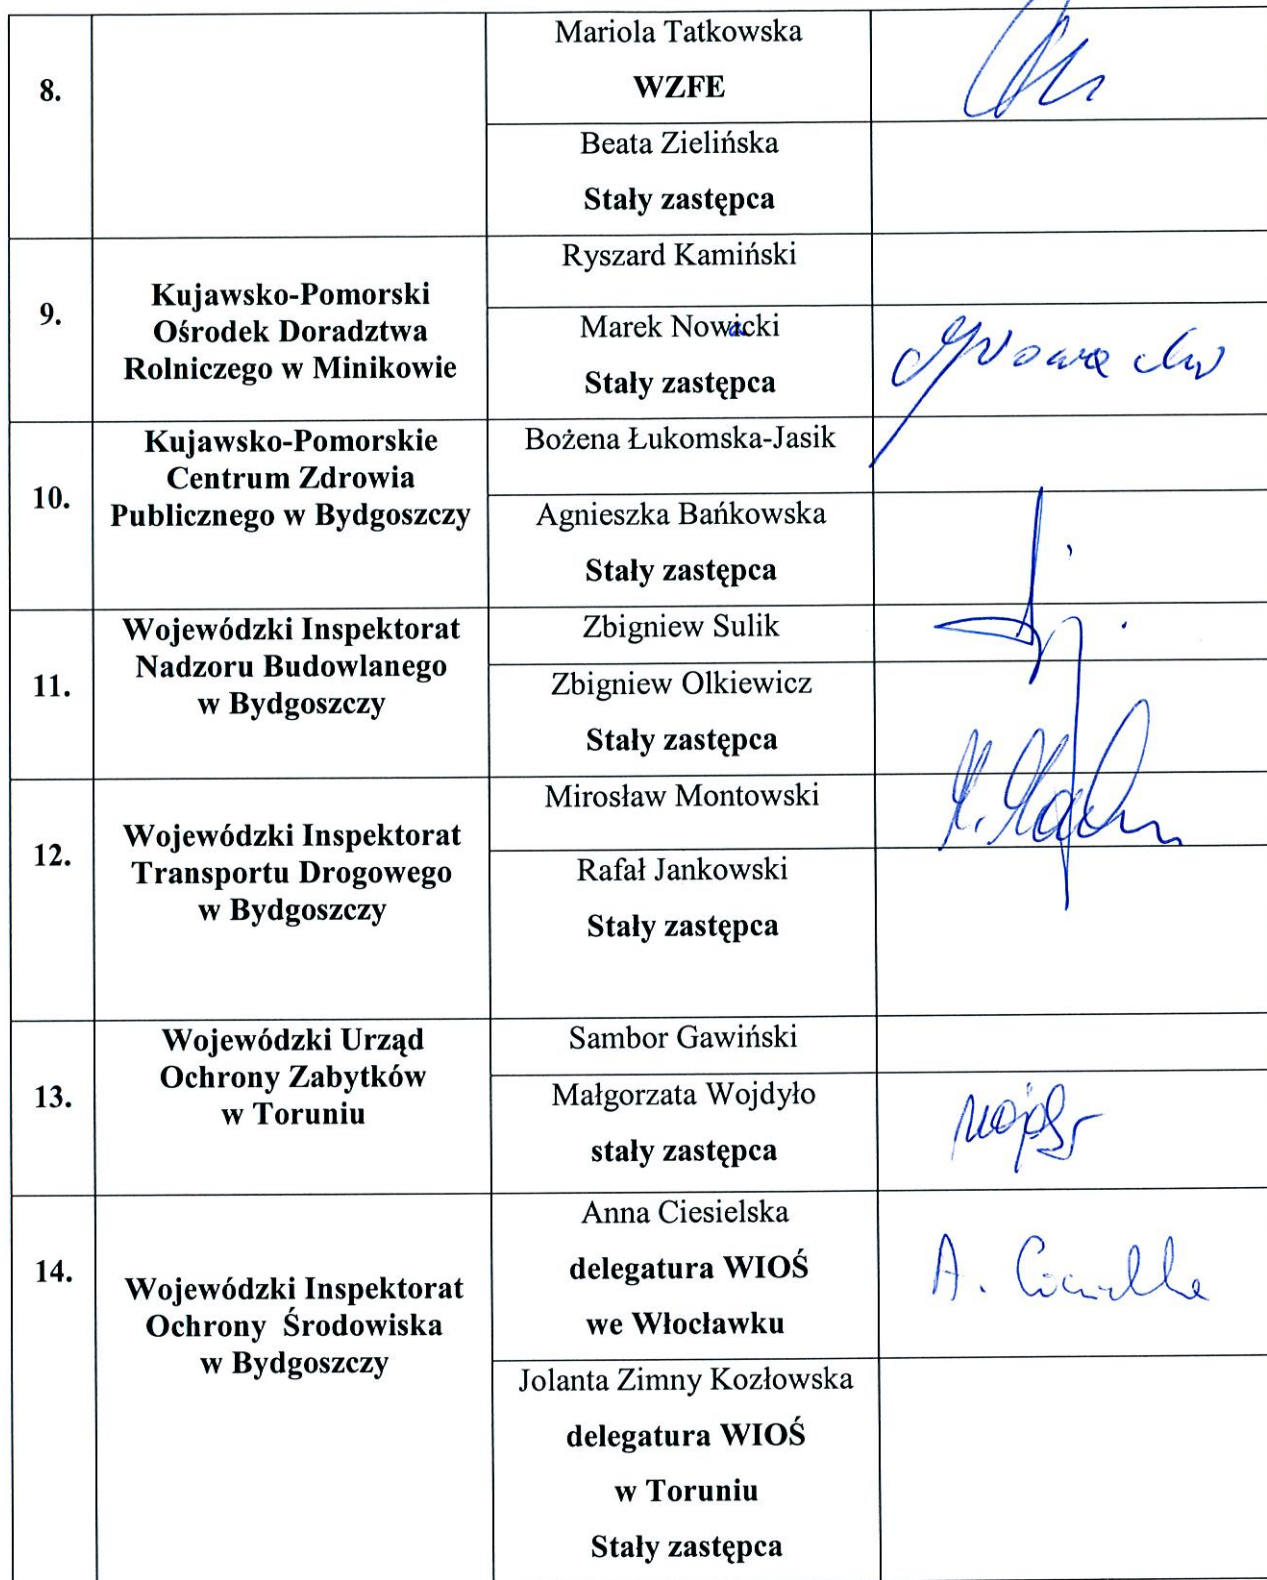 8.
Mariola Tatkowska
WZFE
Beata Zielińska
Stały zastępca
9.
Kujawsko-Pomorski
Ośrodek Doradztwa
Rolniczego w Minikowie
Ryszard Kamiński
Marek Nowacki
Stały zastępca
10.
Kujawsko-Pomorskie
Centrum Zdrowia
Publicznego w Bydgoszczy
Bożena Łukomska-Jasik
Agnieszka Bańkowska
Stały zastępca
11.
Wojewódzki Inspektorat
Nadzoru Budowlanego
w Bydgoszczy
Zbigniew Sulik
Zbigniew Olkiewicz
Stały zastępca
12.
Wojewódzki Inspektorat
Transportu Drogowego
w Bydgoszczy
Mirosław Montowski
Rafał Jankowski
Stały zastępca
13.
Wojewódzki Urząd
Ochrony Zabytków
w Toruniu
Sambor Gawiński
Małgorzata Wojdyło
stały zastępca
14.
Wojewódzki Inspektorat
Ochrony Środowiska
w Bydgoszczy
Anna Ciesielska
delegatura WIOŚ
we Włocławku
A.
Jolanta Zimny Kozłowska
delegatura WIOŚ
w Toruniu
Stały zastępca